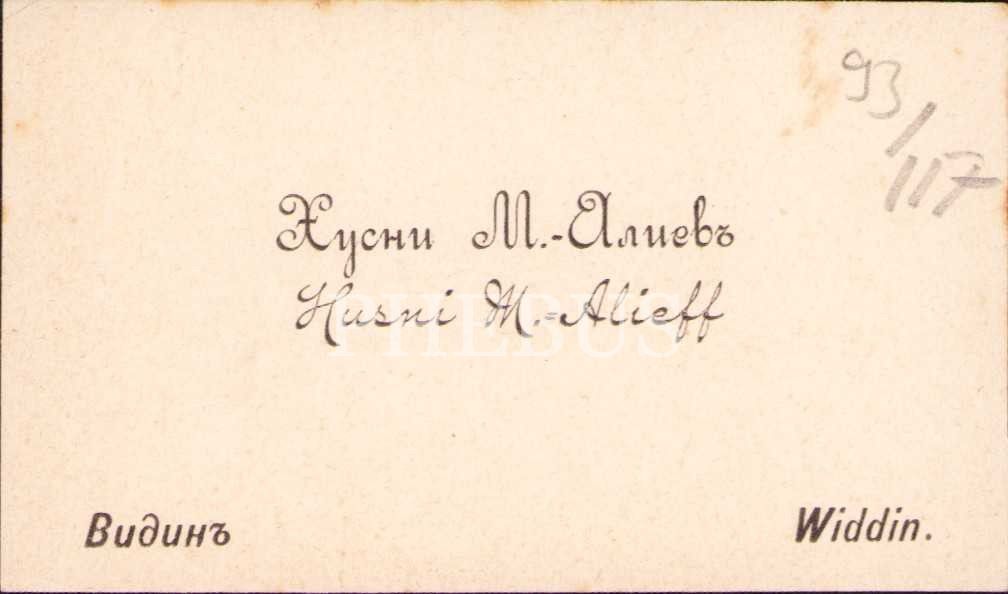 93/117
Хусни М.-Алиевъ
Husni M.-Alieff
PHEBUS
Видинъ Widdin.